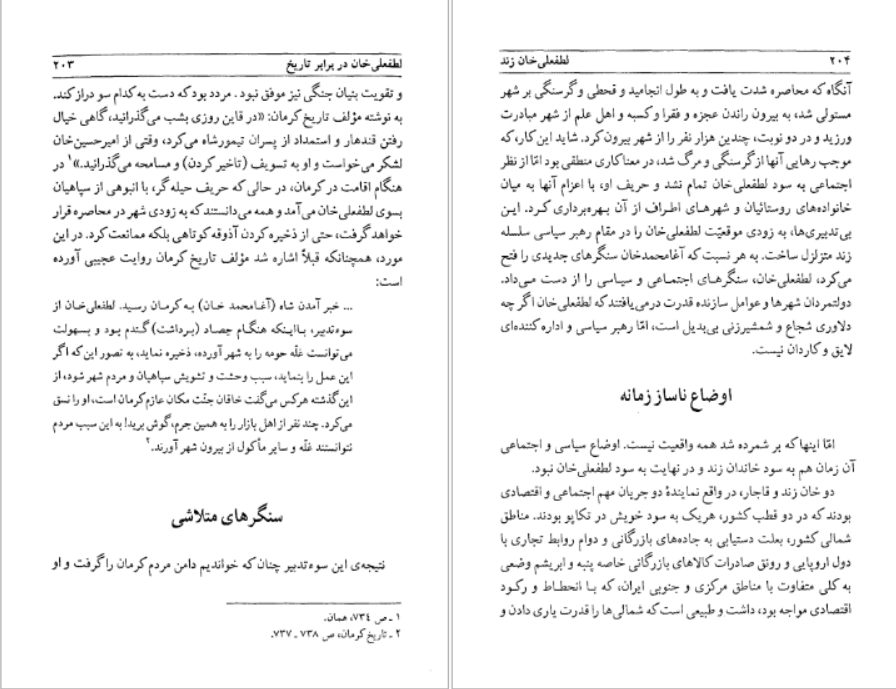 لطفعلی‌خان در برابر تاریخ ۲۰۳
و تقویت بنیان جنگی نیز موفق نبود. مردد بود که دست به کدام سو دراز کند.
به نوشته مؤلف تاریخ کرمان: «در قاین روزی بشب می‌گذرانید، گاهی خیال
رفتن قندهار و استمداد از پسران تیمورشاه می‌کرد، وقتی از امیرحسین‌خان
لشکر می‌خواست و او به تسویف (تاخیر کردن) و مسامحه می‌گذرانید.»۱ در
هنگام اقامت در کرمان، در حالی که حریف حیله گر، با انبوهی از سپاهیان
بسوی لطفعلی‌خان می‌آمد و همه می‌دانستند که به زودی شهر در محاصره قرار
خواهد گرفت، حتی از ذخیره کردن آذوقه کوتاهی بلکه ممانعت کرد. در این
مورد، همچنانکه قبلاً اشاره شد مؤلف تاریخ کرمان روایت عجیبی آورده
است:
... خبر آمدن شاه (آغامحمد خان) به کرمان رسید. لطفعلی‌خان از
سوءتدبیر، بااینکه هنگام حصاد (برداشت) گندم بود و بسهولت
می‌توانست غلّه حومه را به شهر آورده، ذخیره نماید، به تصور این که اگر
این عمل را بنماید، سبب وحشت و تشویش سپاهیان و مردم شهر شود، از
این گذشته هرکس می‌گفت خاقان جنّت مکان عازم کرمان است، او را نسق
می‌کرد. چند نفر از اهل بازار را به همین جرم، گوش برید! به این سبب مردم
نتوانستند غلّه و سایر مأکول از بیرون شهر آورند.۲
سنگرهای متلاشی
نتیجه‌ی این سوءتدبیر چنان که خواندیم دامن مردم کرمان را گرفت و او
۱ ـ ص ۷۳٤، همان.
۲ ـ تاریخ کرمان، ص ۷۳۸ ـ ۷۳۷.
۲۰۴ لطفعلی‌خان زند
آنگاه که محاصره شدت یافت و به طول انجامید و قحطی و گرسنگی بر شهر
مستولی شد، به بیرون راندن عجزه و فقرا و کسبه و اهل علم از شهر مبادرت
ورزید و در دو نوبت، چندین هزار نفر را از شهر بیرون کرد. شاید این کار، که
موجب رهایی آنها از گرسنگی و مرگ شد، در معنا کاری منطقی بود امّا از نظر
اجتماعی به سود لطفعلی‌خان تمام نشد و حریف او، با اعزام آنها به میان
خانواده‌های روستائیان و شهرهای اطراف از آن بهره‌برداری کرد. این
بی‌تدبیری‌ها، به زودی موقعیّت لطفعلی‌خان را در مقام رهبر سیاسی سلسله
زند متزلزل ساخت. به هر نسبت که آغامحمدخان سنگرهای جدیدی را فتح
می‌کرد، لطفعلی‌خان، سنگرهای اجتماعی و سیاسی را از دست می‌داد.
دولتمردان شهرها و عوامل سازنده قدرت درمی‌یافتند که لطفعلی‌خان اگر چه
دلاوری شجاع و شمشیرزنی بی‌بدیل است، امّا رهبر سیاسی و اداره کننده‌ای
لایق و کاردان نیست.
اوضاع ناساز زمانه
امّا اینها که بر شمرده شد همه واقعیت نیست. اوضاع سیاسی و اجتماعی
آن زمان هم به سود خاندان زند و در نهایت به سود لطفعلی‌خان نبود.
دو خان زند و قاجار، در واقع نمایندهٔ دو جریان مهم اجتماعی و اقتصادی
بودند که در دو قطب کشور، هر یک به سود خویش در تکاپو بودند. مناطق
شمالی کشور، بعلت دستیابی به جاده‌های بازرگانی و دوام روابط تجاری با
دول اروپایی و رونق صادرات کالاهای بازرگانی خاصه پنبه و ابریشم وضعی
به کلی متفاوت با مناطق مرکزی و جنوبی ایران، که با انحطاط و رکود
اقتصادی مواجه بود، داشت و طبیعی است که شمالی‌ها را قدرت یاری دادن و